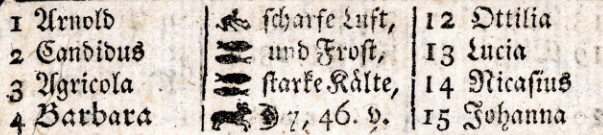 1 Arnold scharfe Luft, 12 Ottilia
2 Candidus und Frost, 13 Lucia
3 Agricola starke Kälte, 14 Nicasius
4 Barbara ☽ 7, 46. v. 15 Johanna